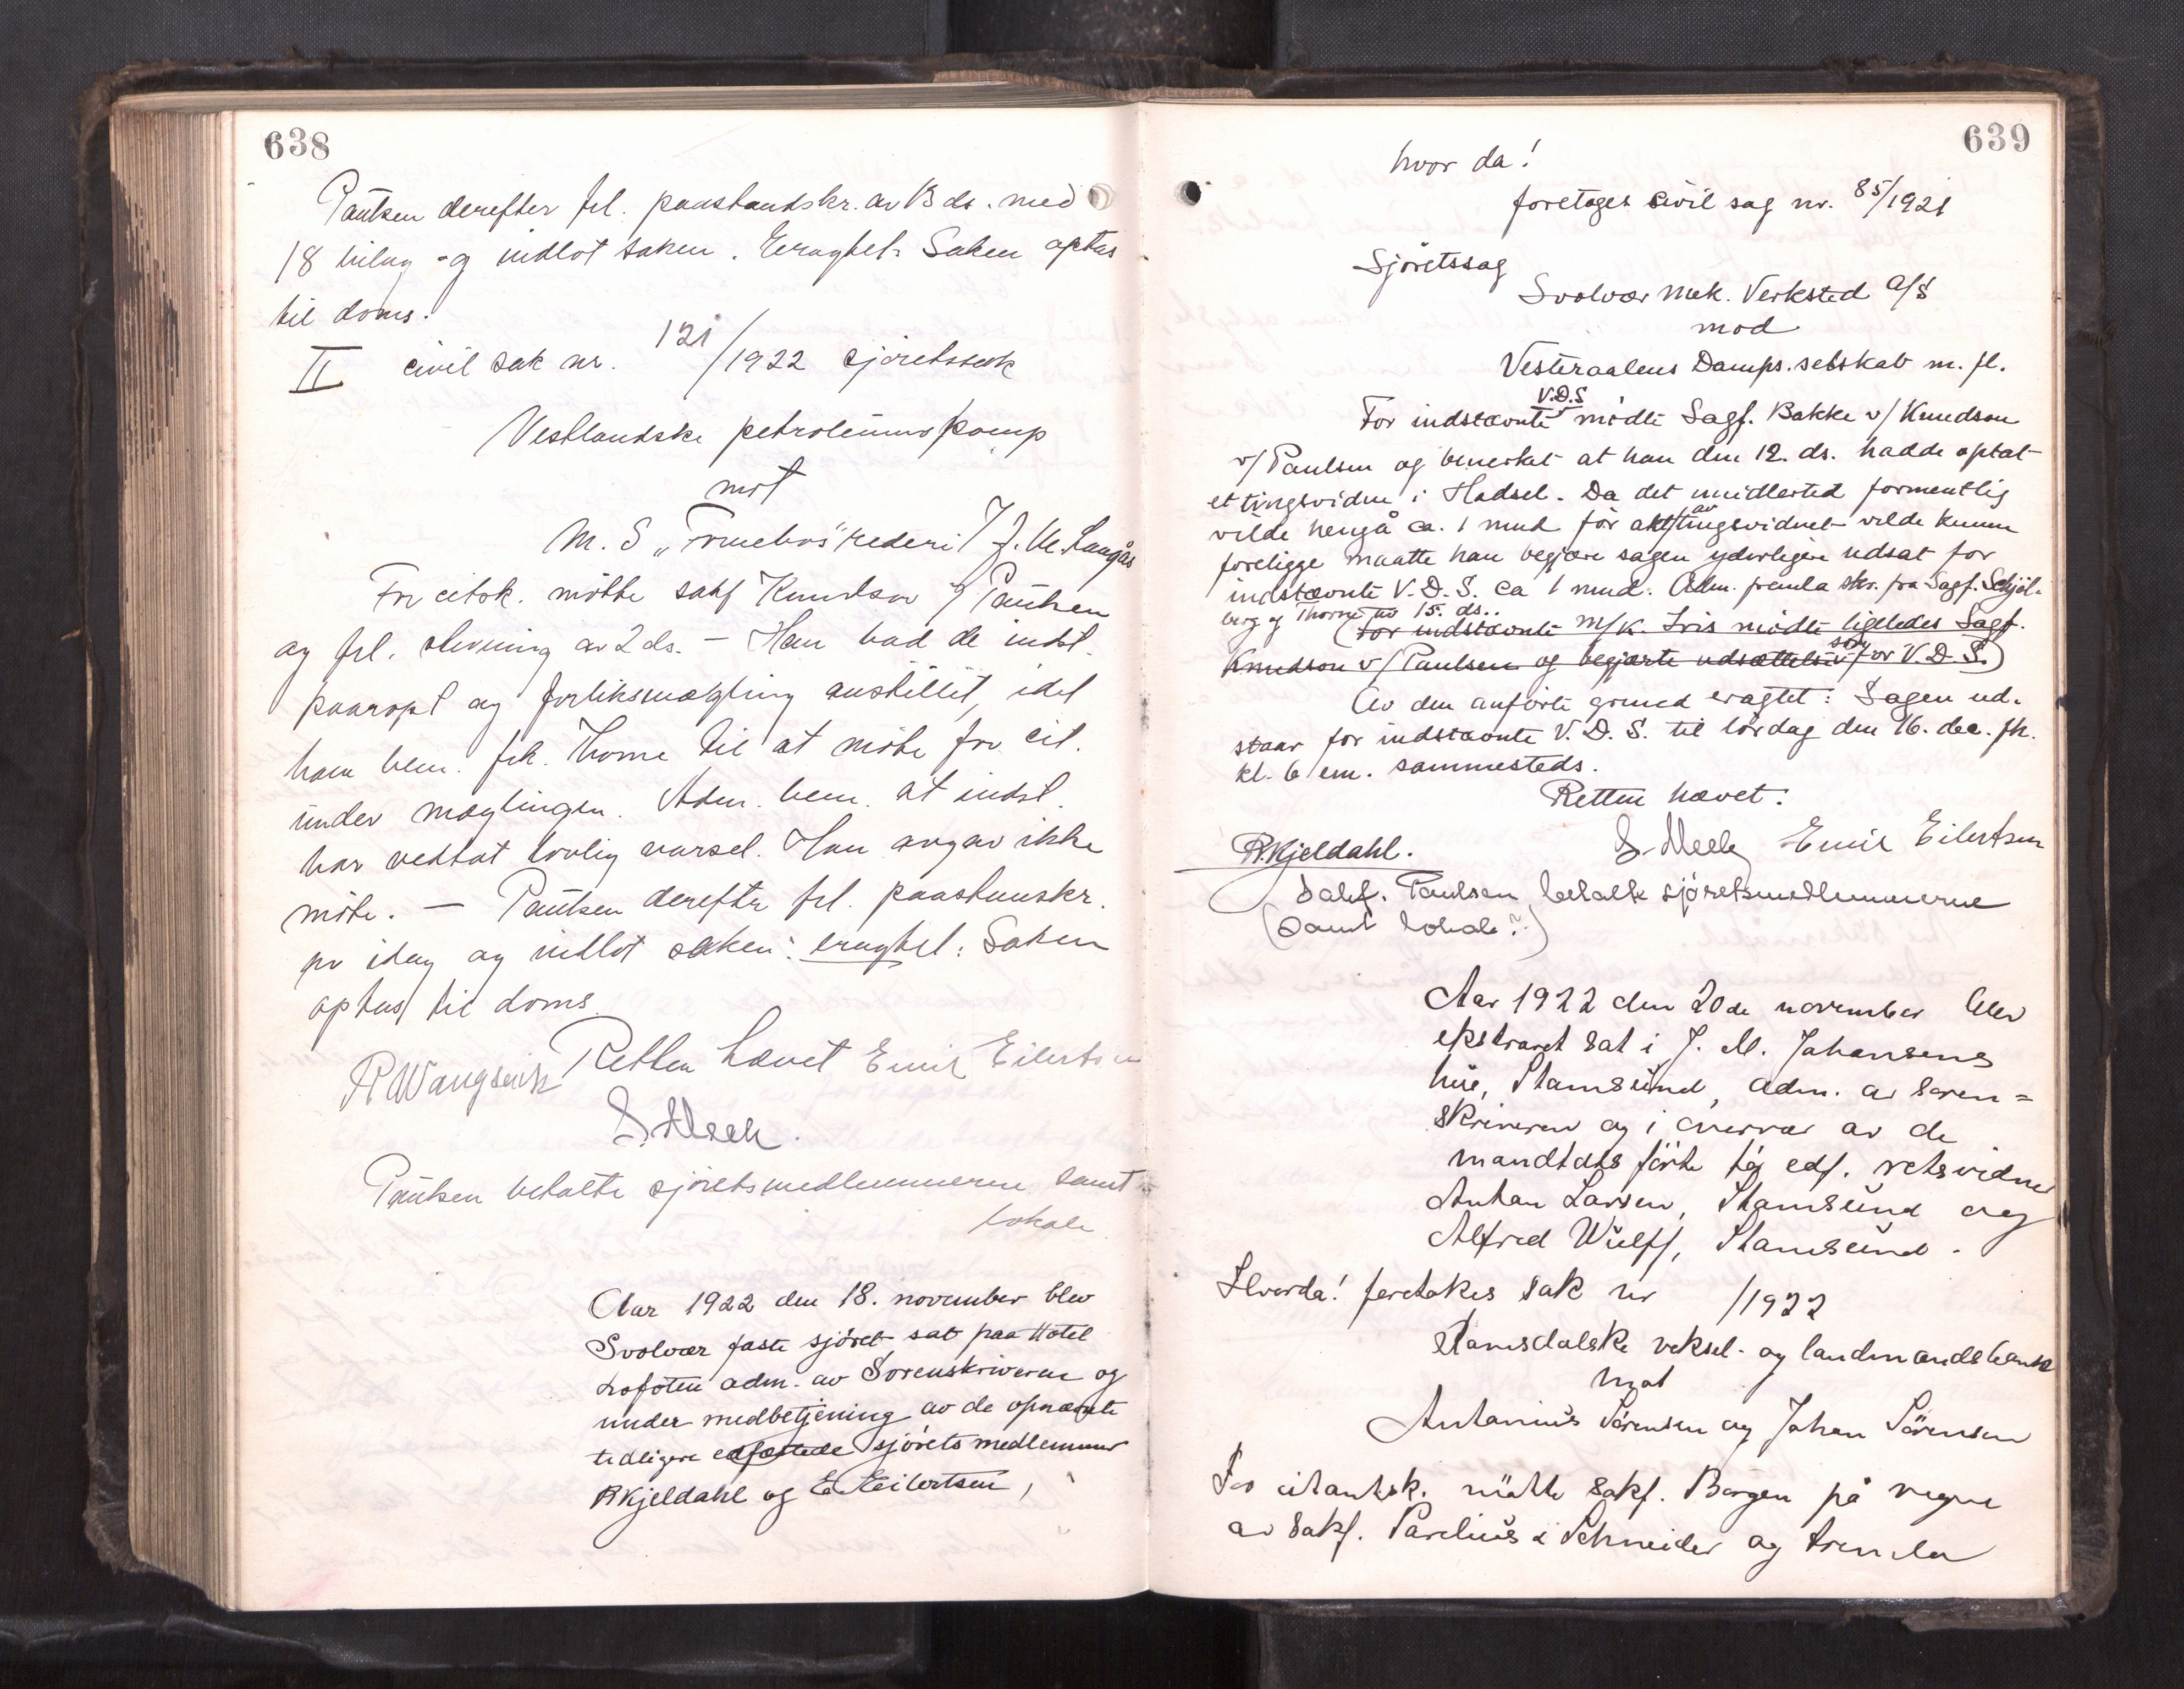 638
Paulsen derefter frl. paastandskr. av 13 ds. med
18 bilag og indlot saken. Eragtet: Saken optas
til doms.
II civil sak nr. 121/1922 sjöretssak
Vestlandske petroleumskomp
mot
M.S. „Fornebo" rederi / J. M. Langås
For citsk. mötte sakf Knudson v/ Paulsen
og frl. stevning av 2 ds. - Han bad de indst.
paaropt og forliksmægling anstillet, idet
han bem. frk. Thorne til at möte for cit.
under mæglingen. Adm. bem. at indst.
har vedtat lovlig varsel. Han avgav ikke
möte. - Paulsen derefter frl. paastandskr.
pr idag og indlot saken: eragtet: Saken
optas til doms.
Retten hævet Emil Eilertsen
R Wangsvik
S. Meek.
Paulsen betalte sjöretsmedlemmerne samt
lokale
Aar 1922 den 18. november blev
Svolvær faste sjöret sat paa Hotel
Lofoten adm. av Sorenskriveren og
under medbetjening av de opnævnte
tidligere edfæstede sjörets medlemmer
R Kjeldahl og E Eilertsen,
639
hvor da!
foretoges civil sag nr. 85/1921
Sjöretssag
Svolvær Mek. Verksted A/S
mod
Vesteraalens Damps.selskab m. fl.
V.D.S
For indstævnte mödte Sagf. Bakke v/ Knudson
v/ Paulsen og bemerket at han den 12. ds. hadde optat
et tingsvidne i Hadsel. Da det imidlertid formentlig
vilde hengå ca. 1 mnd för akt av tingsvidnet vilde kunne
foreligge maatte han begjære sagen yderligere udsat for
indstævnte V.D.S. ca 1 mnd. Adm. fremla skr. fra Sagf. Schjöl-
berg og Thorne av 15. ds..
(For indstævnte M/K. Iris mödte ligeledes Sagf.
Knudson v/ Paulsen og begjærte udsættelse som for V.D.S.)
Av den anförte grund eragtet: Sagen ud-
staar for indstævnte V.D.S. til lördag den 16. dec. fk.
kl. 6 em. sammesteds.
Retten hævet:
R. Kjeldahl. S. Meek Emil Eilertsen
Sakf. Paulsen betalte sjöretsmedlemmerne
(samt lokale?)
Aar 1922 den 20de november blev
ekstraret sat i J. M. Johansens
hus, Stamsund, adm. av soren=
skriveren og i overvær av de
mandtals förte og edf. retsvidner
Anton Larsen, Stamsund og
Alfred Wulff, Stamsund.
Hvorda! foretokes sak nr /1922
Romsdalske veksel- og landmandsbank
mot
Antonius Sörensen og Johan Sörensen
For citantsk. mötte sakf. Borgen på vegne
av sakf. Parelius & Schneider og fremla